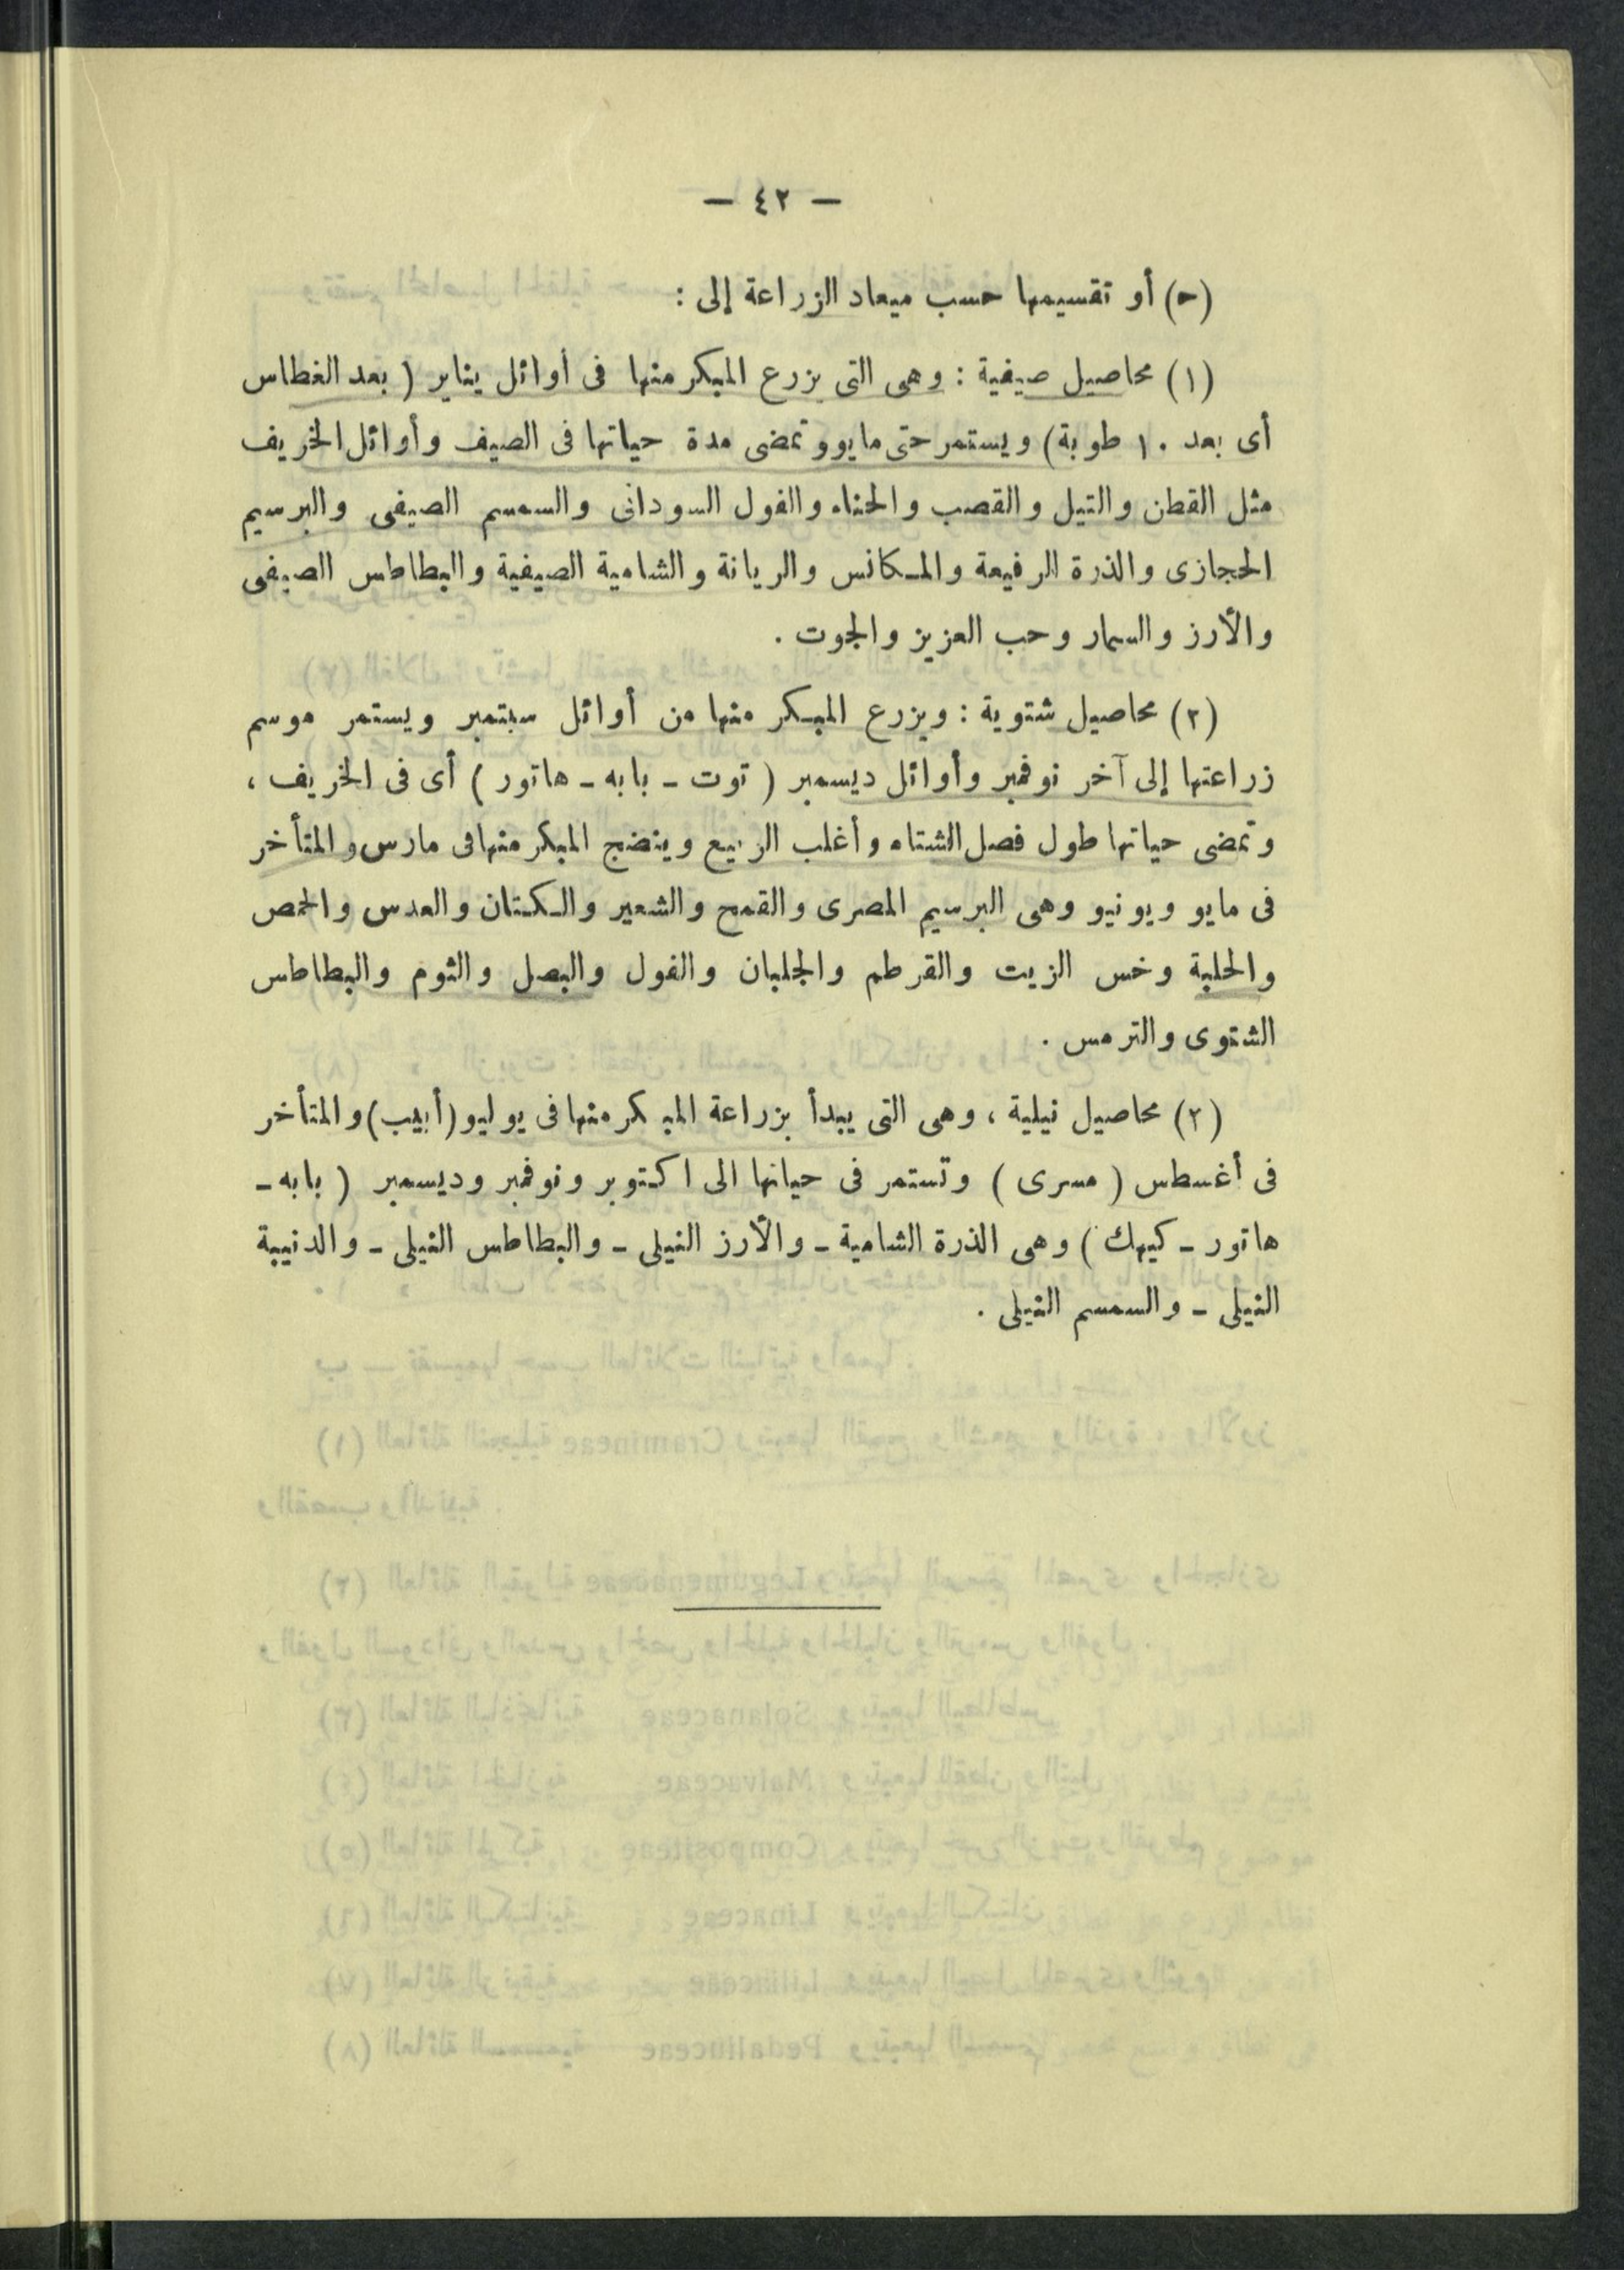 — ٤٢ —
(ح) أو تقسيمها حسب ميعاد الزراعة إلى :
(١) محاصيل صيفية : وهى التى يزرع المبكر منها فى أوائل يناير ( بعد الغطاس
أى بعد ١٠ طوبة) ويستمر حتى مايو وتمضى مدة حياتها فى الصيف وأوائل الخريف
مثل القطن والتيل والقصب والحناء والفول السودانى والسمسم الصيفى والبرسيم
الحجازى والذرة الرفيعة والمكانس والريانة والشامية الصيفية والبطاطس الصيفى
والأرز والسمار وحب العزيز والجوت .
(٢) محاصيل شتوية : ويزرع المبكر منها من أوائل سبتمبر ويستمر موسم
زراعتها إلى آخر نوفمبر وأوائل ديسمبر ( توت - بابه - هاتور ) أى فى الخريف ،
وتمضى حياتها طول فصل الشتاء وأغلب الربيع وينضج المبكر منها فى مارس والمتأخر
فى مايو ويونيو وهى البرسيم المصرى والقمح والشعير والكتان والعدس والحمص
والحلبة وخس الزيت والقرطم والجلبان والفول والبصل والثوم والبطاطس
الشتوى والترمس .
(٢) محاصيل نيلية ، وهى التى يبدأ بزراعة المبكر منها فى يوليو (أبيب) والمتأخر
فى أغسطس ( مسرى ) وتستمر فى حياتها الى اكتوبر ونوفمبر وديسمبر ( بابه -
هاتور - كيهك ) وهى الذرة الشامية - والأرز النيلى - والبطاطس النيلى - والدنيبة
النيلى - والسمسم النيلى .